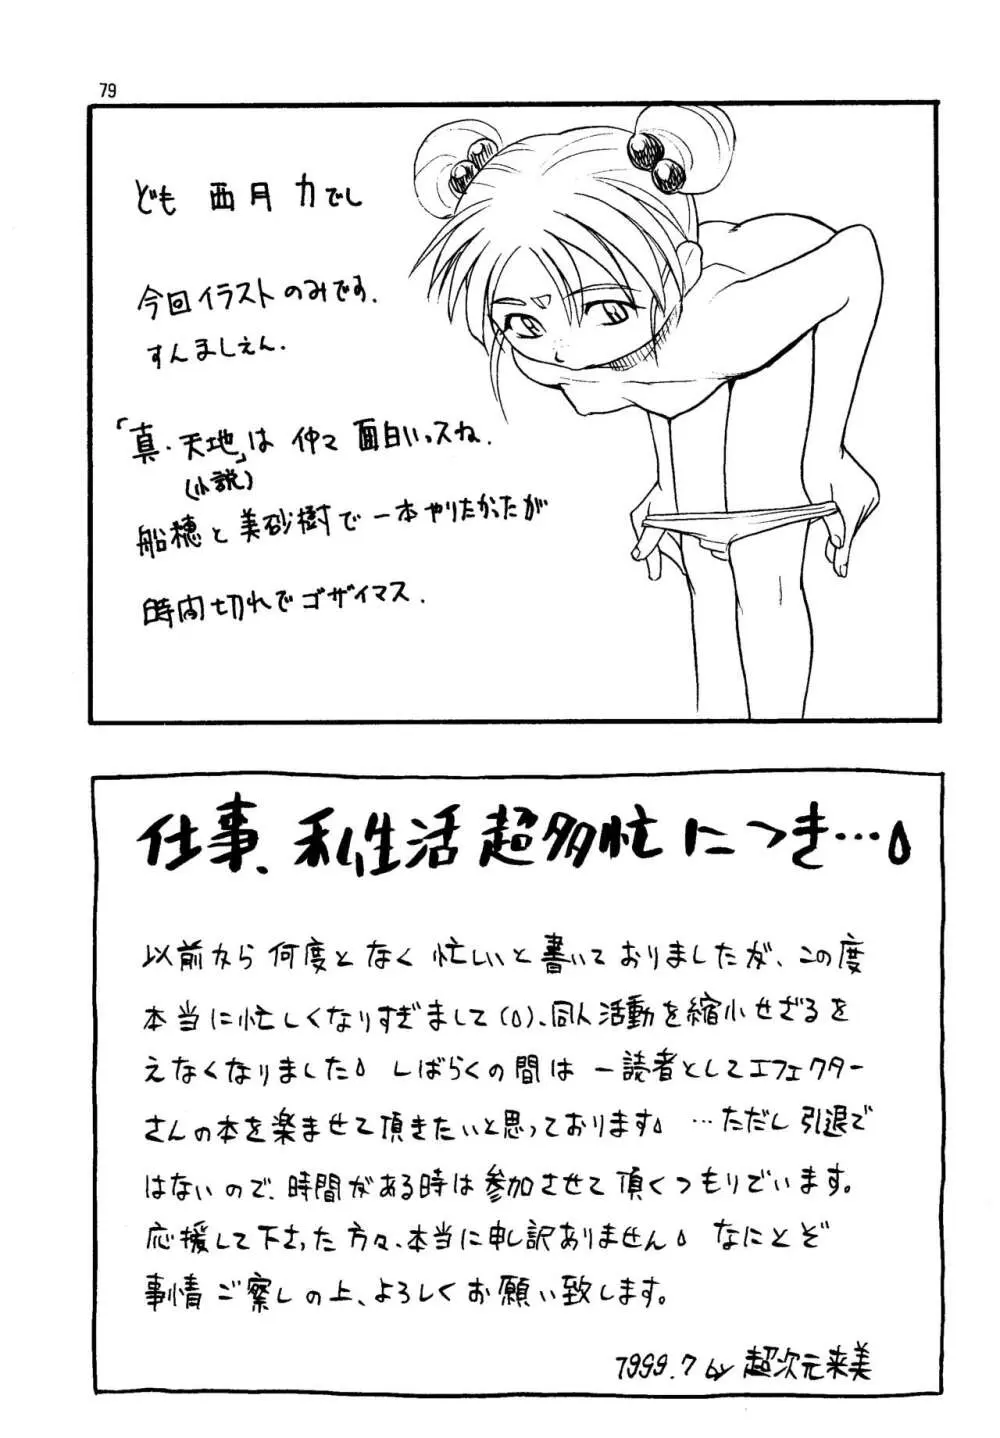 79
ども 西月 力でし
今回イラストのみです.
すんましぇん.
「真・天地」は 仲々 面白いっスね.
(小説)
船穂と美砂樹で一本やりたかったが
時間切れでゴザイマス.
仕事、私生活超多忙につき…
以前から何度となく忙しいと書いておりましたが、この度
本当に忙しくなりすぎまして()、同人活動を縮小せざるを
えなくなりました しばらくの間は一読者としてエフェクター
さんの本を楽ませて頂きたいと思っております …ただし引退で
はないので、時間がある時は参加させて頂くつもりでいます。
応援して下さった方々、本当に申し訳ありません なにとぞ
事情ご察しの上、よろしくお願い致します。
1999.7 by 超次元来美